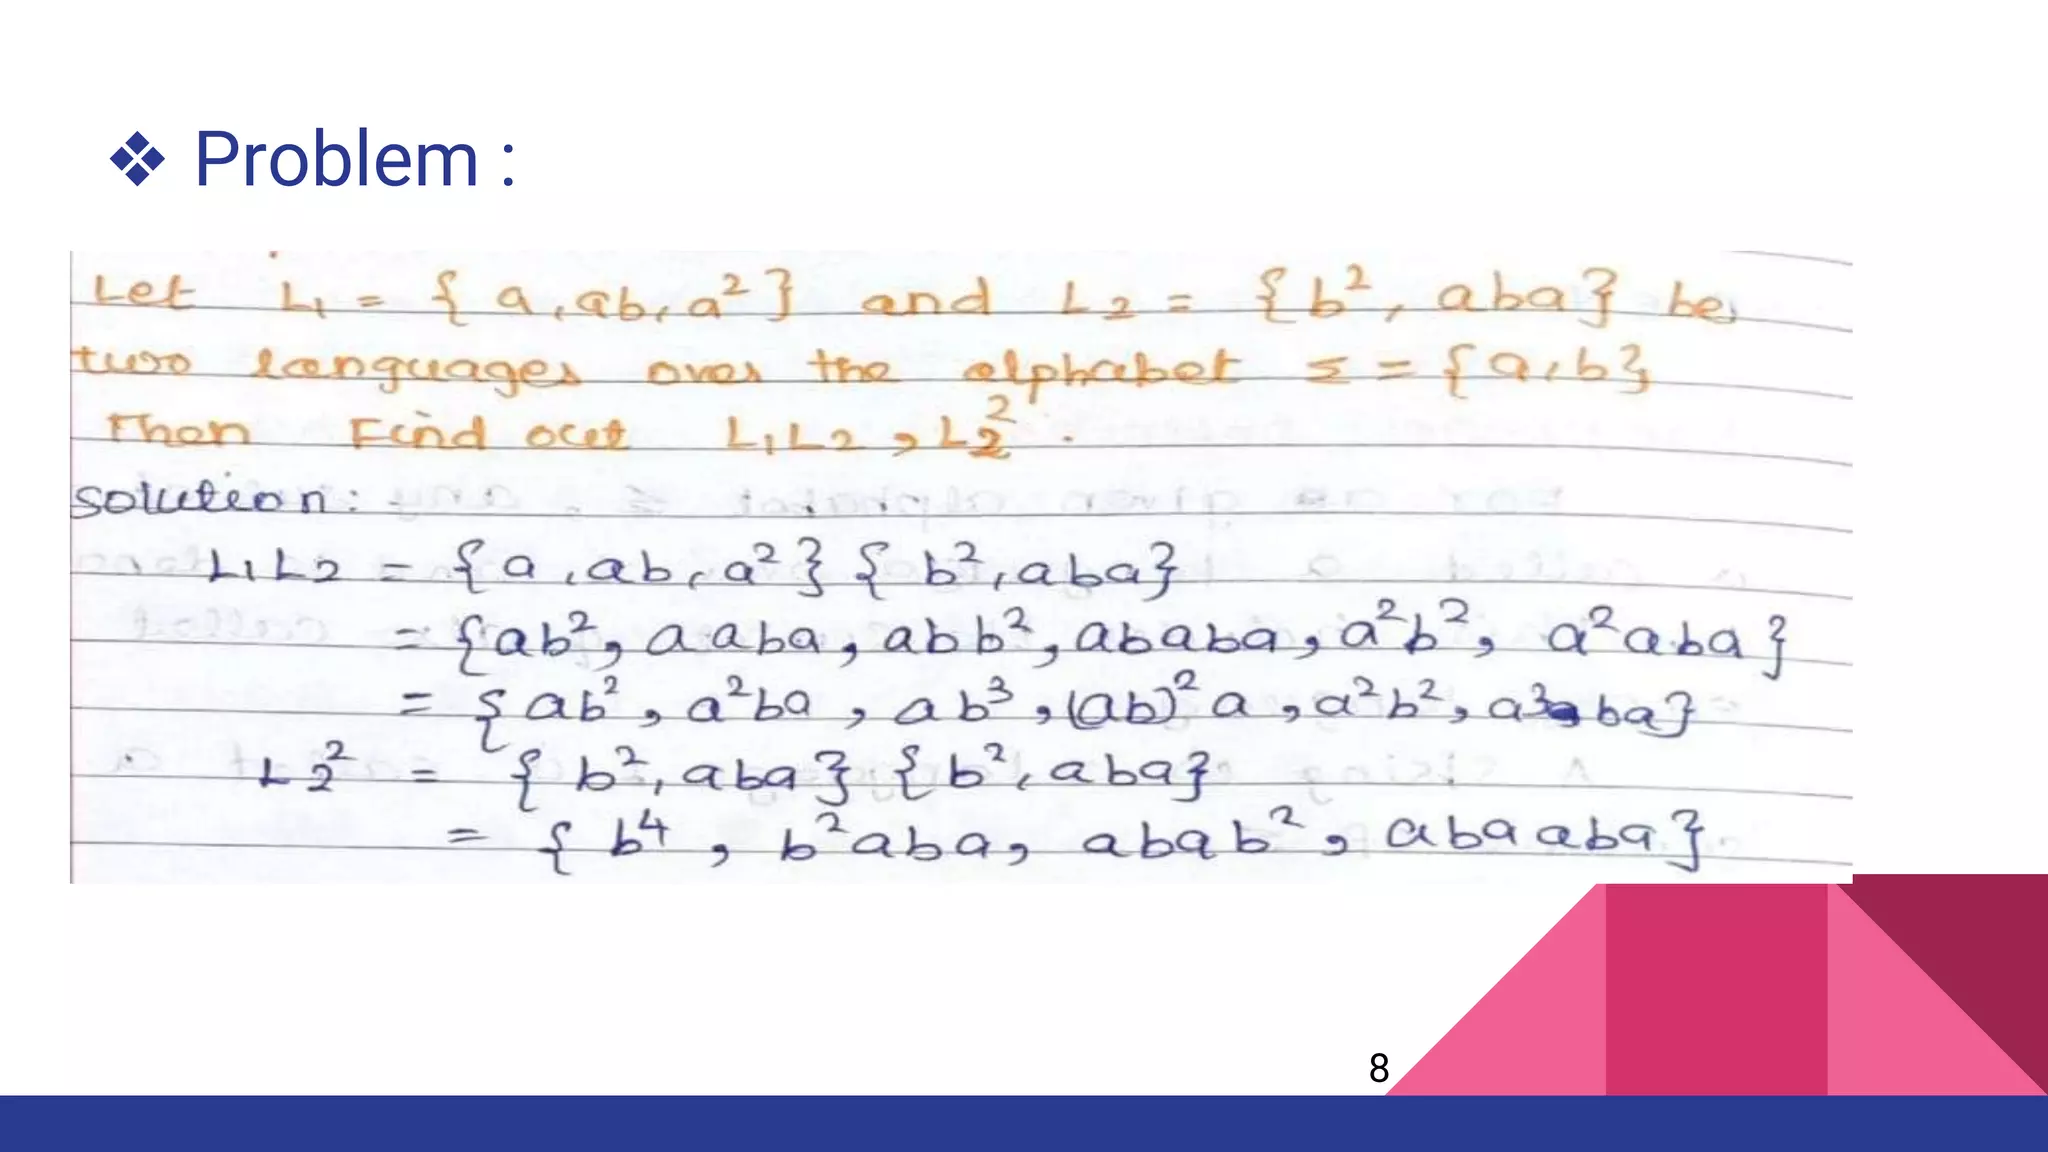 ❖ Problem :
Let L₁ = { a, ab, a² } and L₂ = { b², aba } be
two languages over the alphabet Σ = { a, b }
Then Find out L₁L₂ , L₂² .
Solution :
L₁L₂ = { a, ab, a² } { b², aba }
= { ab², aaba, abb², ababa, a²b², a²aba }
= { ab², a²ba, ab³, (ab)²a, a²b², a³ba }
L₂² = { b², aba } { b², aba }
= { b⁴, b²aba, abab², abaaba }
8